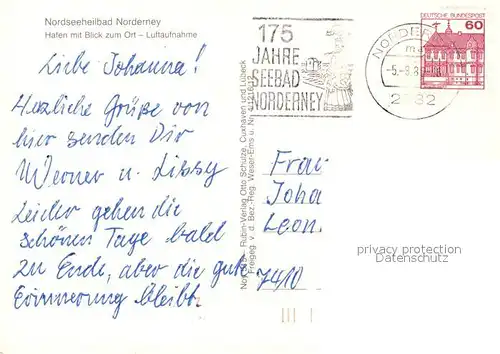 Nordseeheilbad Norderney
Hafen mit Blick zum Ort – Luftaufnahme
Liebe Johanna!
Herzliche Grüße von
hier senden Dir
Werner u. Lissy
Leider gehen die
schönen Tage bald
zu Ende, aber die gute
Erinnerung bleibt.
175
JAHRE
SEEBAD
NORDERNEY
DEUTSCHE BUNDESPOST
60
NORDER
Rubin-Verlag Otto Schulze, Cuxhaven und Lübeck
Freigeg. v. d. Bez.-Reg. Weser-Ems u. Nr.
Frau
Joha
Leon
7410
privacy protection
Datenschutz